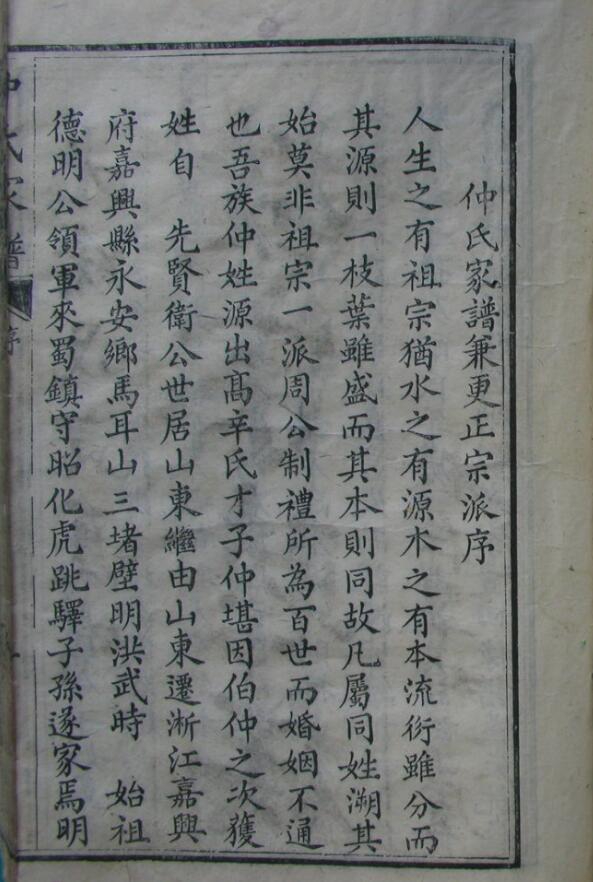 仲氏家譜兼更正宗派序
人生之有祖宗猶水之有源木之有本流衍雖分而
其源則一枝葉雖盛而其本則同故凡屬同姓溯其
始莫非祖宗一派周公制禮所為百世而婚姻不通
也吾族仲姓源出髙辛氏才子仲堪因伯仲之次獲
姓自　先賢衛公世居山東繼由山東遷淅江嘉興
府嘉興縣永安鄉馬耳山三堵壁明洪武時　始祖
德明公領軍來蜀鎮守昭化虎跳驛子孫遂家焉明
氏家譜
序